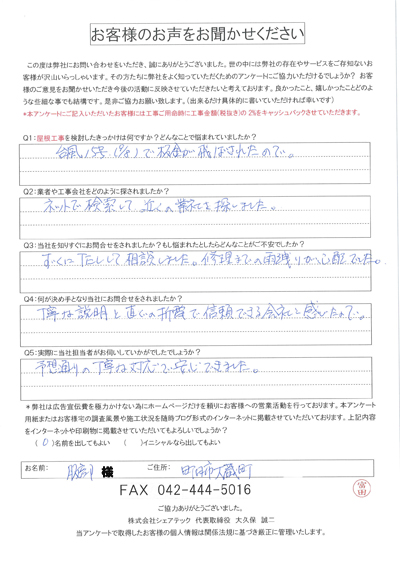 お客様のお声をお聞かせください
この度は弊社にお問い合わせをいただき、誠にありがとうございました。世の中には弊社の存在やサービスをご存知ないお
客様が沢山いらっしゃいます。その方たちに弊社をよく知っていただくためのアンケートにご協力いただけるでしょうか？ お客
様のご意見をお聞かせいただき今後の活動に反映させていただきたいと考えております。良かったこと、嬉しかったことどのよ
うな些細な事でも結構です。是非ご協力お願い致します。（出来るだけ具体的に書いていただければ幸いです）
*本アンケートにご記入いただいたお客様には工事ご用命時に工事金額(税抜き)の 2%をキャッシュバックさせていただきます。
Q1:屋根工事を検討したきっかけは何ですか？どんなことで悩まれていましたか？
台風15号(9/9)で板金が飛ばされたので。
Q2:業者や工事会社をどのように探されましたか？
ネットで検索して、近くの業社を探しました。
Q3:当社を知りすぐにお問合せをされましたか？もし悩まれたとしたらどんなことがご不安でしたか？
すぐにTELして相談しました。修理までの雨洩りが心配でした。
Q4:何が決め手となり当社にお問合せをされましたか？
丁寧な説明と直ぐの折電で信頼できる会社と感じたので。
Q5:実際に当社担当者がお伺いしていかがでしたでしょうか？
予想通りの丁寧な対応で安心できました。
*弊社は広告宣伝費を極力かけない為にホームページだけを頼りにお客様への営業活動を行っております。本アンケート
用紙またはお客様宅の調査風景や施工状況を随時ブログ形式のインターネットに掲載させていただいております。上記内容
をインターネットや印刷物に掲載させていただいてもよろしいでしょうか？
（ O ）名前を出してもよい （ ）イニシャルなら出してもよい
お名前: 服部 様 ご住所: 町田市大蔵町
FAX 042-444-5016
富田
ご協力ありがとうございました。
株式会社シェアテック 代表取締役 大久保 誠二
当アンケートで取得したお客様の個人情報は関係法規に基づき厳正に管理いたします。